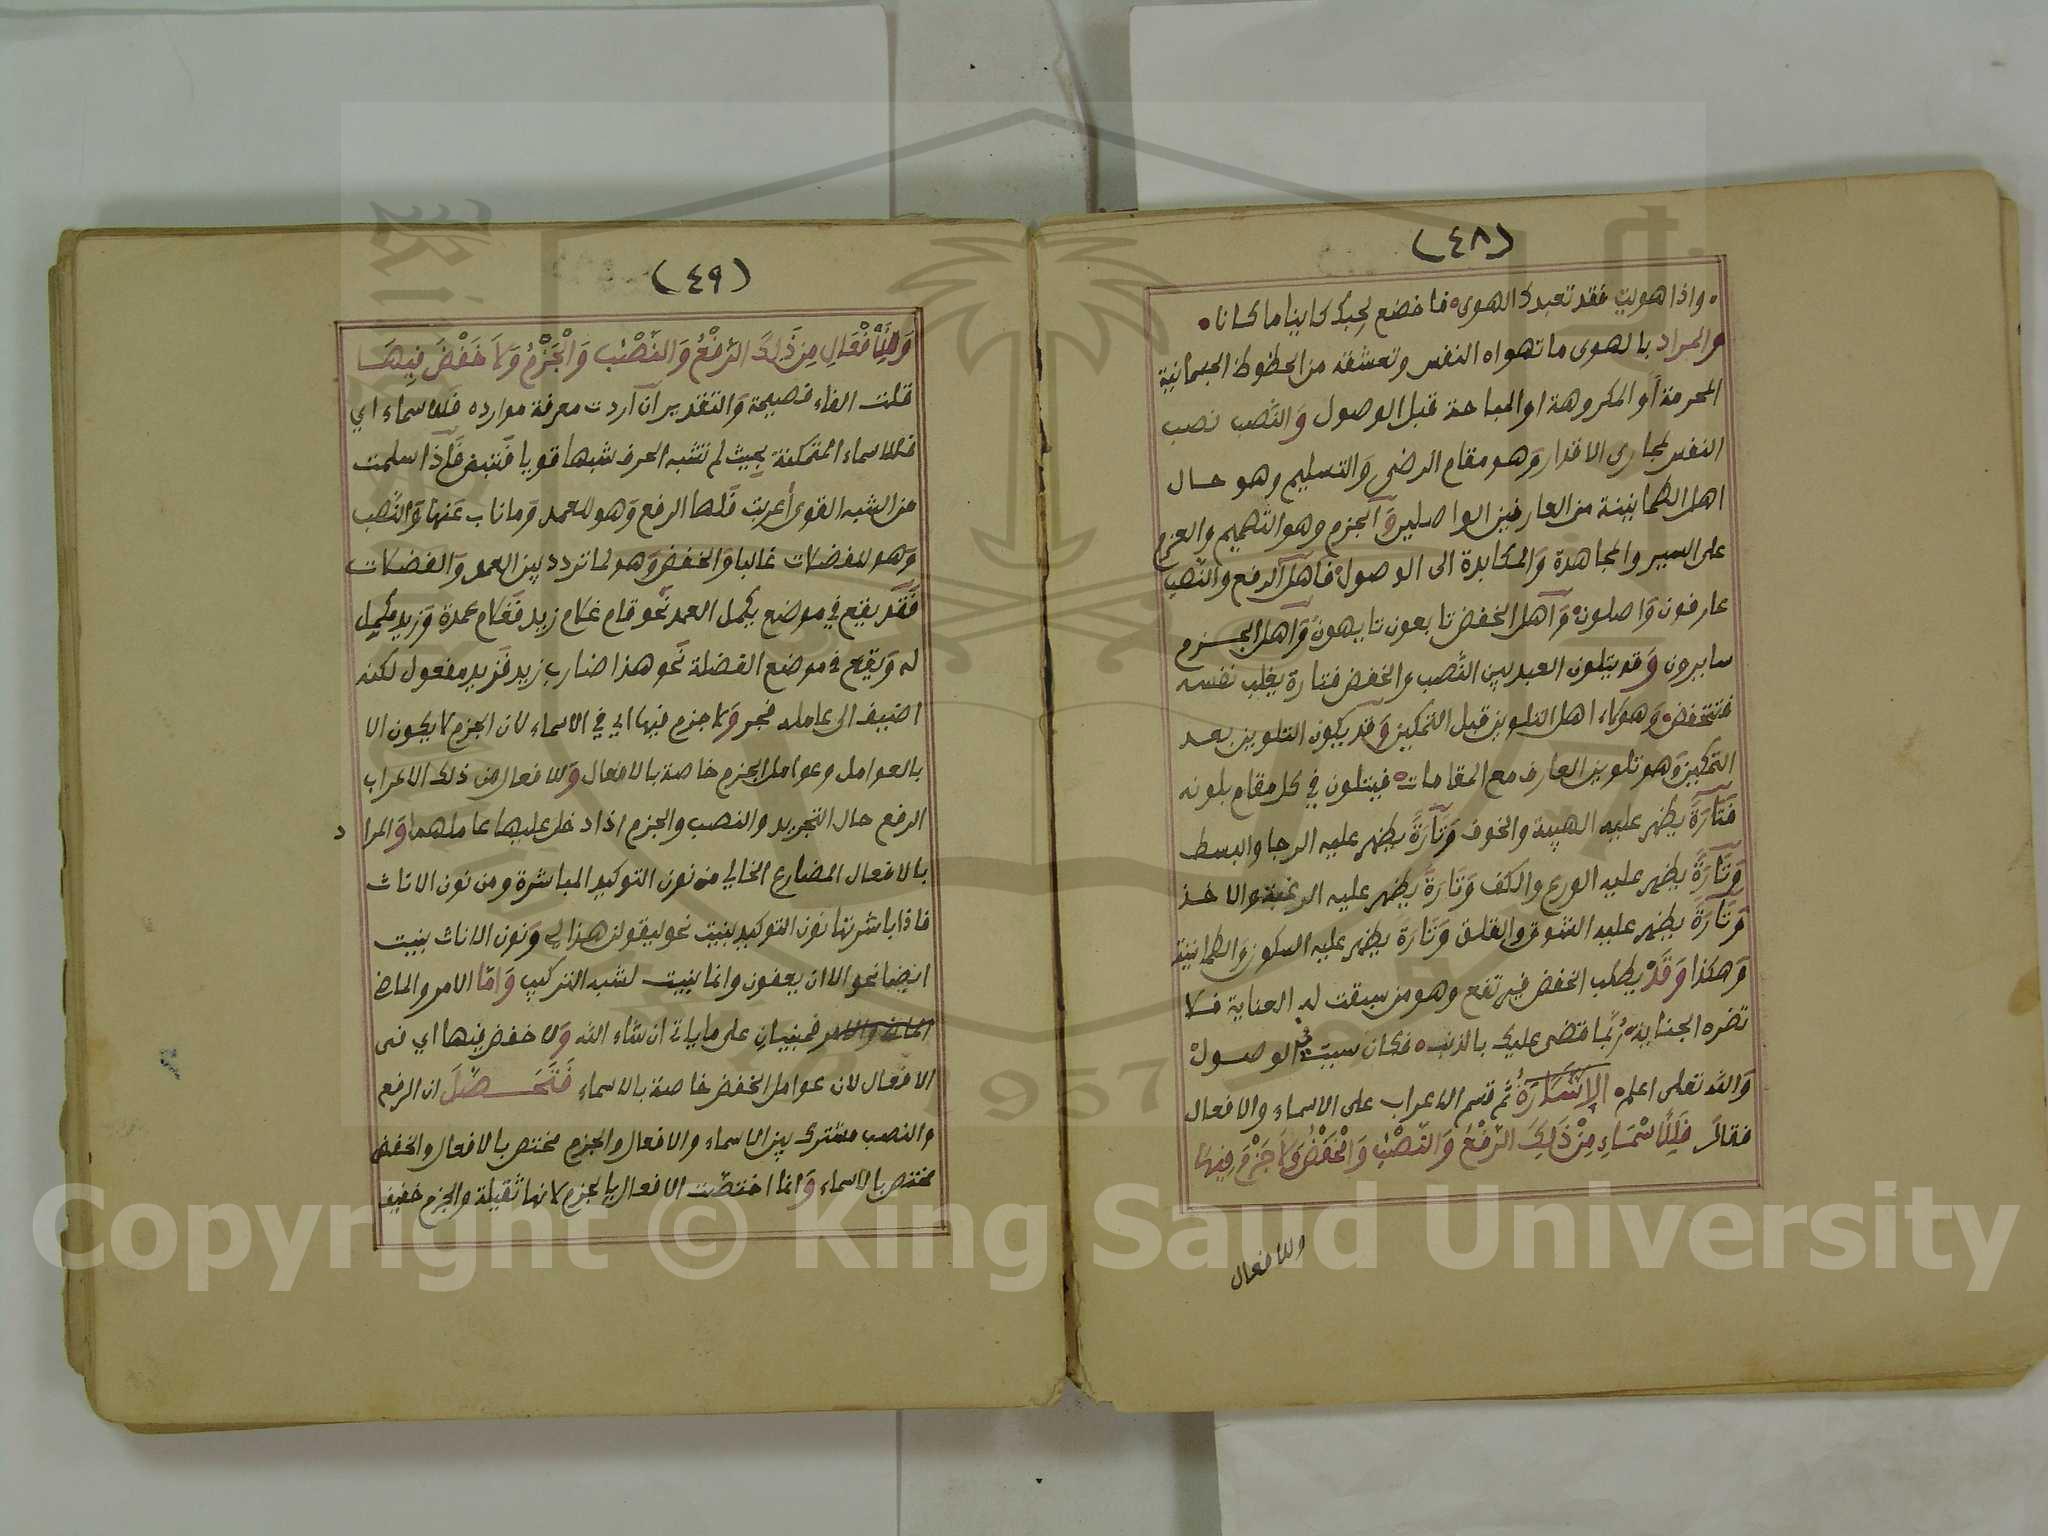 (٤٨)
٠ واذا هويت فقد تعبدك الهوى ٠ فاخضع لحبك كاينا ما كانا ٠
والمراد بالهوى ما تهواه النفس وتعشقه من الحظوظ الجسمانية
المحرمة أو المكروهة او المباحة قبل الوصول وَالنَّصب نصب
النفس لمجارى الاقدار وَهو مقام الرضى وَالتسليم وهو حال
اهل الطمانينة من العارفين الواصلين وَالجزم وهو التصميم والعزم
على السير والمجاهدة وَالمكابدة الى الوصول فاهل الرفع والنصب
عارفون وَاصلون وَاهل الخفض تابعون تايهون وَاهل الجزم
سايرون وَقد يتلون العبد بين النَّصب والخفض فتارة يغلب نفسه
فتنخفض وَهولاء اهل التلوين قبل التمكين وَقد يكون التلوين بعد
التمكين وَهو تلوين العارف مع المقامات فيتلون في كل مقام بلونه
فَتَارَةً يظهر عليه الهيبة والخوف وَتَارَةً يظهر عليه الرجا والبسط
وَتَارَةً يظهر عليه الورع والكف وَتَارَةً يظهر عليه الرغبة والاخذ
وَتَارَةً يظهر عليه الشوق والقلق وَتَارَة يظهر عليه السكون وَالطمانينة
وَهكذا وَقَدْ يطلب الخفض فيرتفع وهو من سبقت له العناية فلا
تضره الجناية رُبَّما قضى عليك بالذنب ٠ فكان سببَ في الوصول
وَالله تعلى اعلم ٠ الاِشَارَةُ ثم قسم الاعراب على الاسماء والافعال
فقالَ فَلِلْأَسْمَاءِ مِنْ ذَلِكَ الرَّفْعُ وَالنَّصْبُ وَالْخَفْضُ وَلاَ جَزْمَ فِيهَا
وللافعال
(٤٩)
وَلِلْأَفْعَالِ مِنْ ذَلِكَ الرَّفْعُ وَالنَّصْبُ وَالْجَزْمُ وَلاَ خَفْضَ فِيهَا
قلت الفاء فصيحة وَالتقدير ان اردت معرفة موارده فللاسماء اي
فللاسماء المتمكنة بحيث لم تشبه الحرف شبها قويا فتبنى فَاذا سلمت
من الشبه القوى أعربت فَلها الرفع وَهو للعمد وَما ناب عَنها وَالنَّصب
وَهو للفضلات غالبا وَالخفض وَهو لما تردد بين العمد وَالفضلات
فَقَد يقع في موضع يكمل العمد نَحو قام غلام زيد فَغلام عمدة وَزيد مكمل
له وَيقع في موضع الفضلة نَحو هذا ضارب زيد فَزيد مفعول لكنه
اضيف الى عامله فجر وَلا جزم فيها اي في الاسماء لان الجزم لا يكون الا
بالعوامل وعوامل الجزم خاصة بالافعال وَللافعال من ذلك الاعراب
الرفع حال التجريد والنصب والجزم اذا دخل عليها عاملهما وَالمراد
بالافعال المضارع الخالي من نون التوكيد المباشرة ومن نون الاناث
فاذا باشرتها نون التوكيد بنيت نحو ليقولن هذا لي وَنون الاناث بنيت
ايضا نحو الا ان يعفون وانما بنيت لشبه التركيب وَامّا الامر والماضي
الماضي والامر فمبنيان على ما ياتي ان شاء الله وَلا خفض فيها اي فى
الافعال لان عوامل الخفض خاصة بالاسماء فَتَحَصَّلَ ان الرفع
والنصب مشترك بين الاسماء والافعال والجزم مختص بالافعال والخفض
مختص بالاسماء وَانما اختصّت الافعال بالجزم لانها ثقيلة والجزم خفيف
Copyright © King Saud University
1957